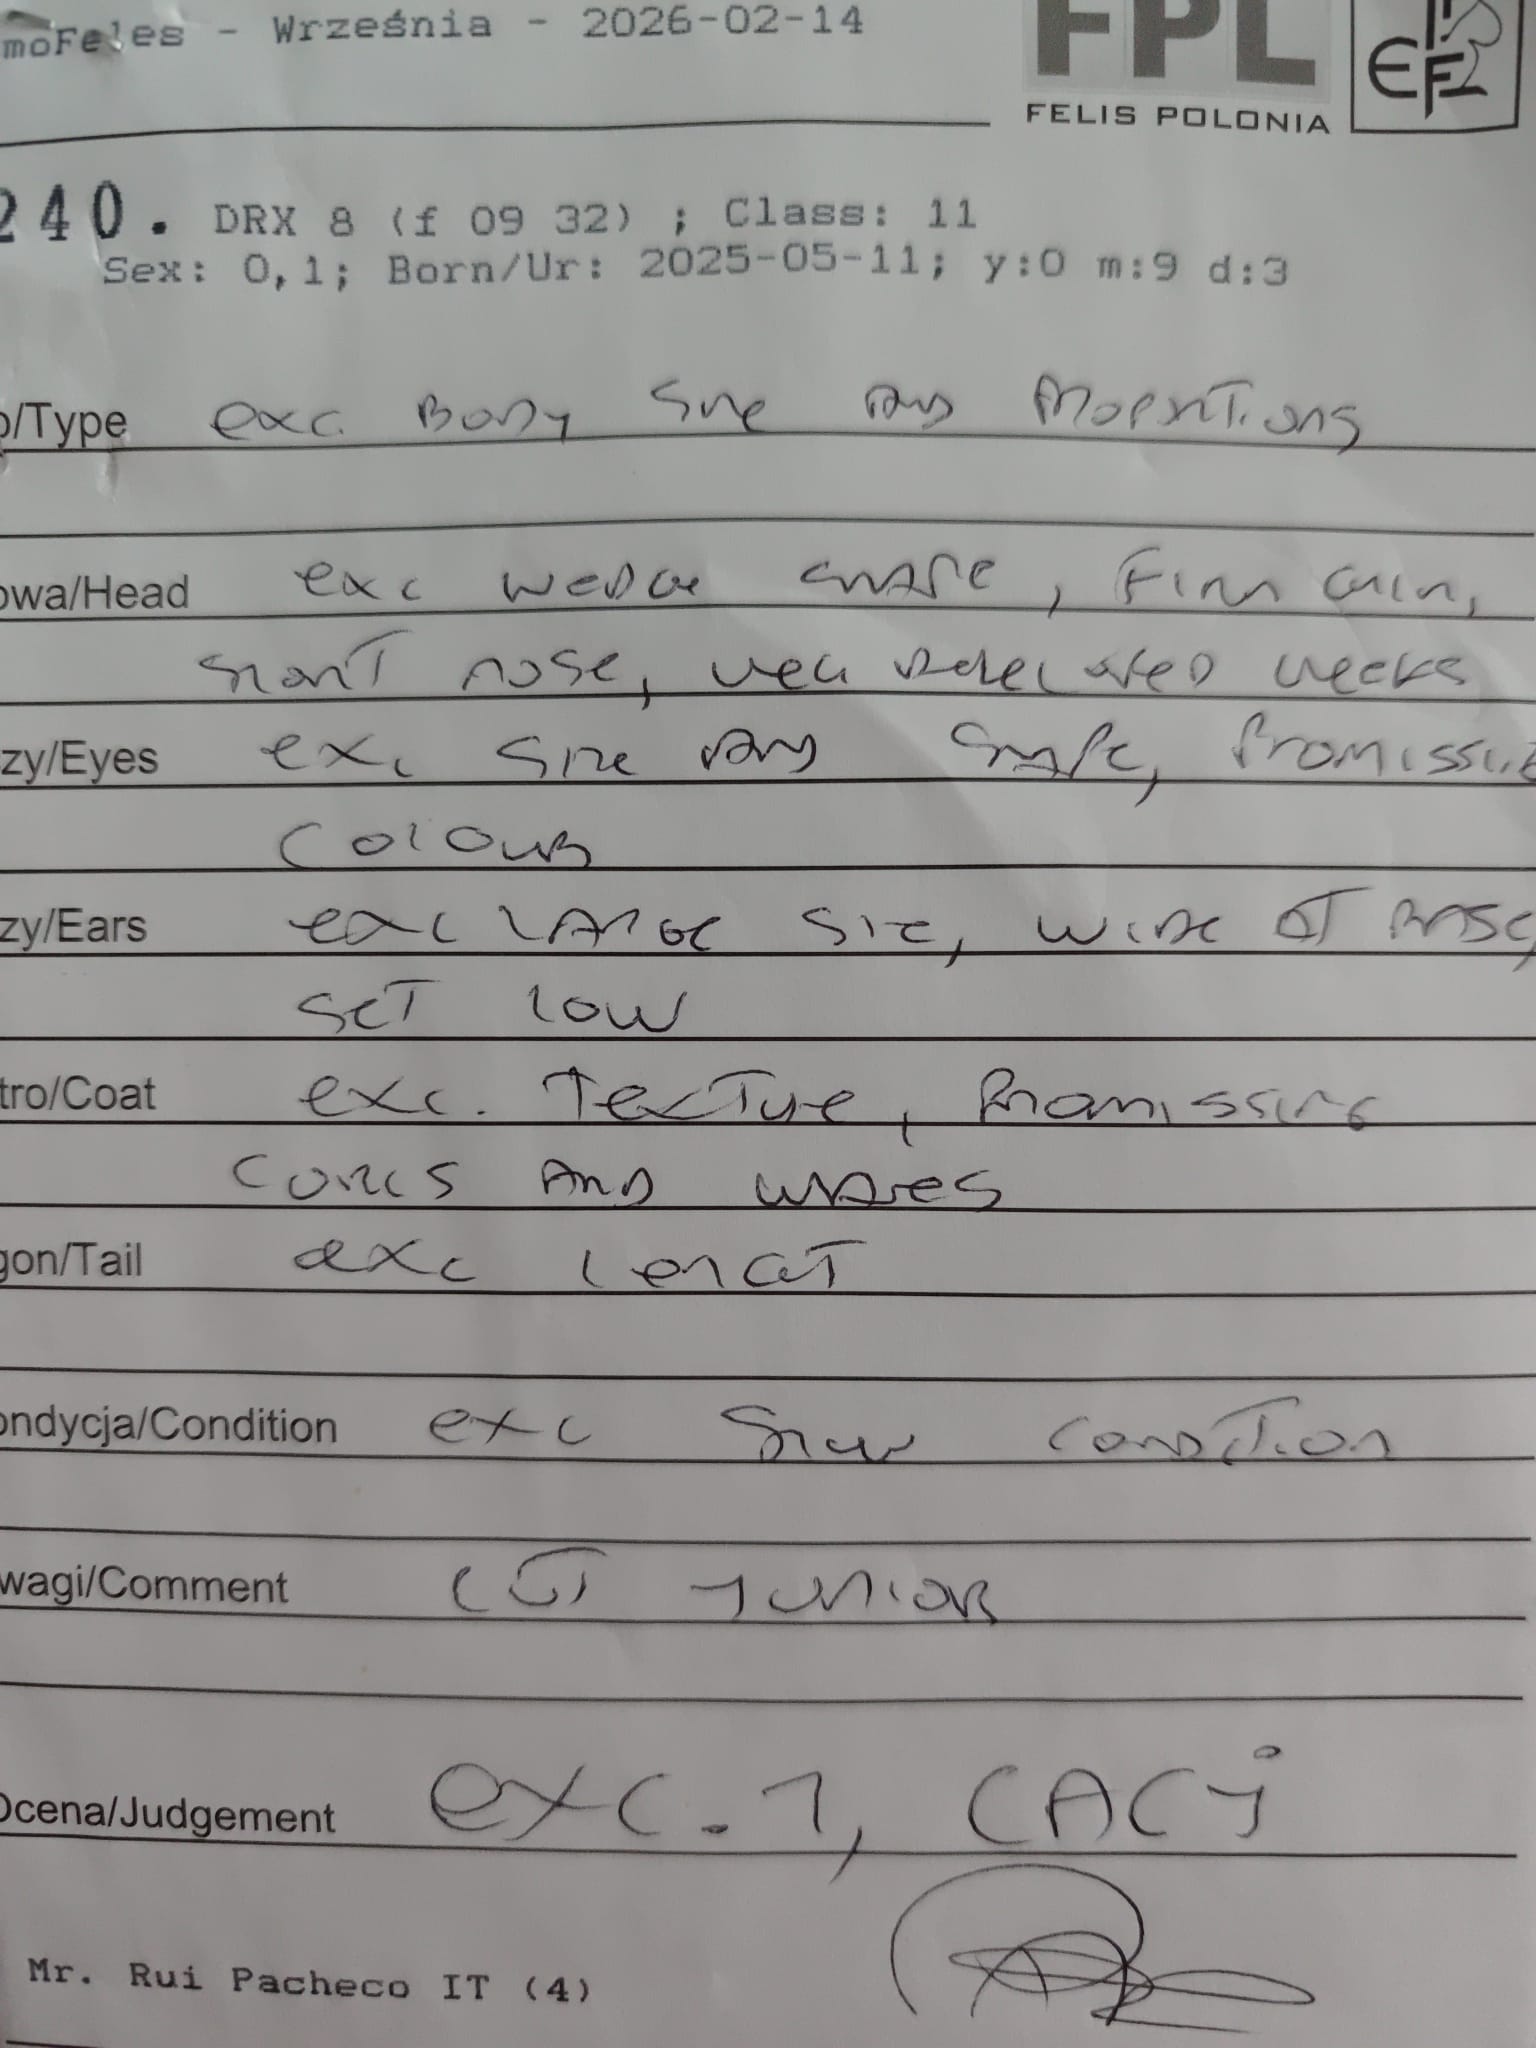 moFeles - Września - 2026-02-14
FPL
FELIS POLONIA
240. DRX 8 (f 09 32) ; Class: 11
Sex: 0,1; Born/Ur: 2025-05-11; y:0 m:9 d:3
p/Type exc. Body size and proportions
owa/Head exc wedge shape, firm chin,
short nose, well cheeks
zy/Eyes exc size and shape, promissing
colour
zy/Ears exc large size, wide at base,
set low
tro/Coat exc. texture, promissing
curls and waves
gon/Tail exc lengt
ondycja/Condition exc show condition
wagi/Comment Junior
Ocena/Judgement exc. 1, CACJ
Mr. Rui Pacheco IT (4)